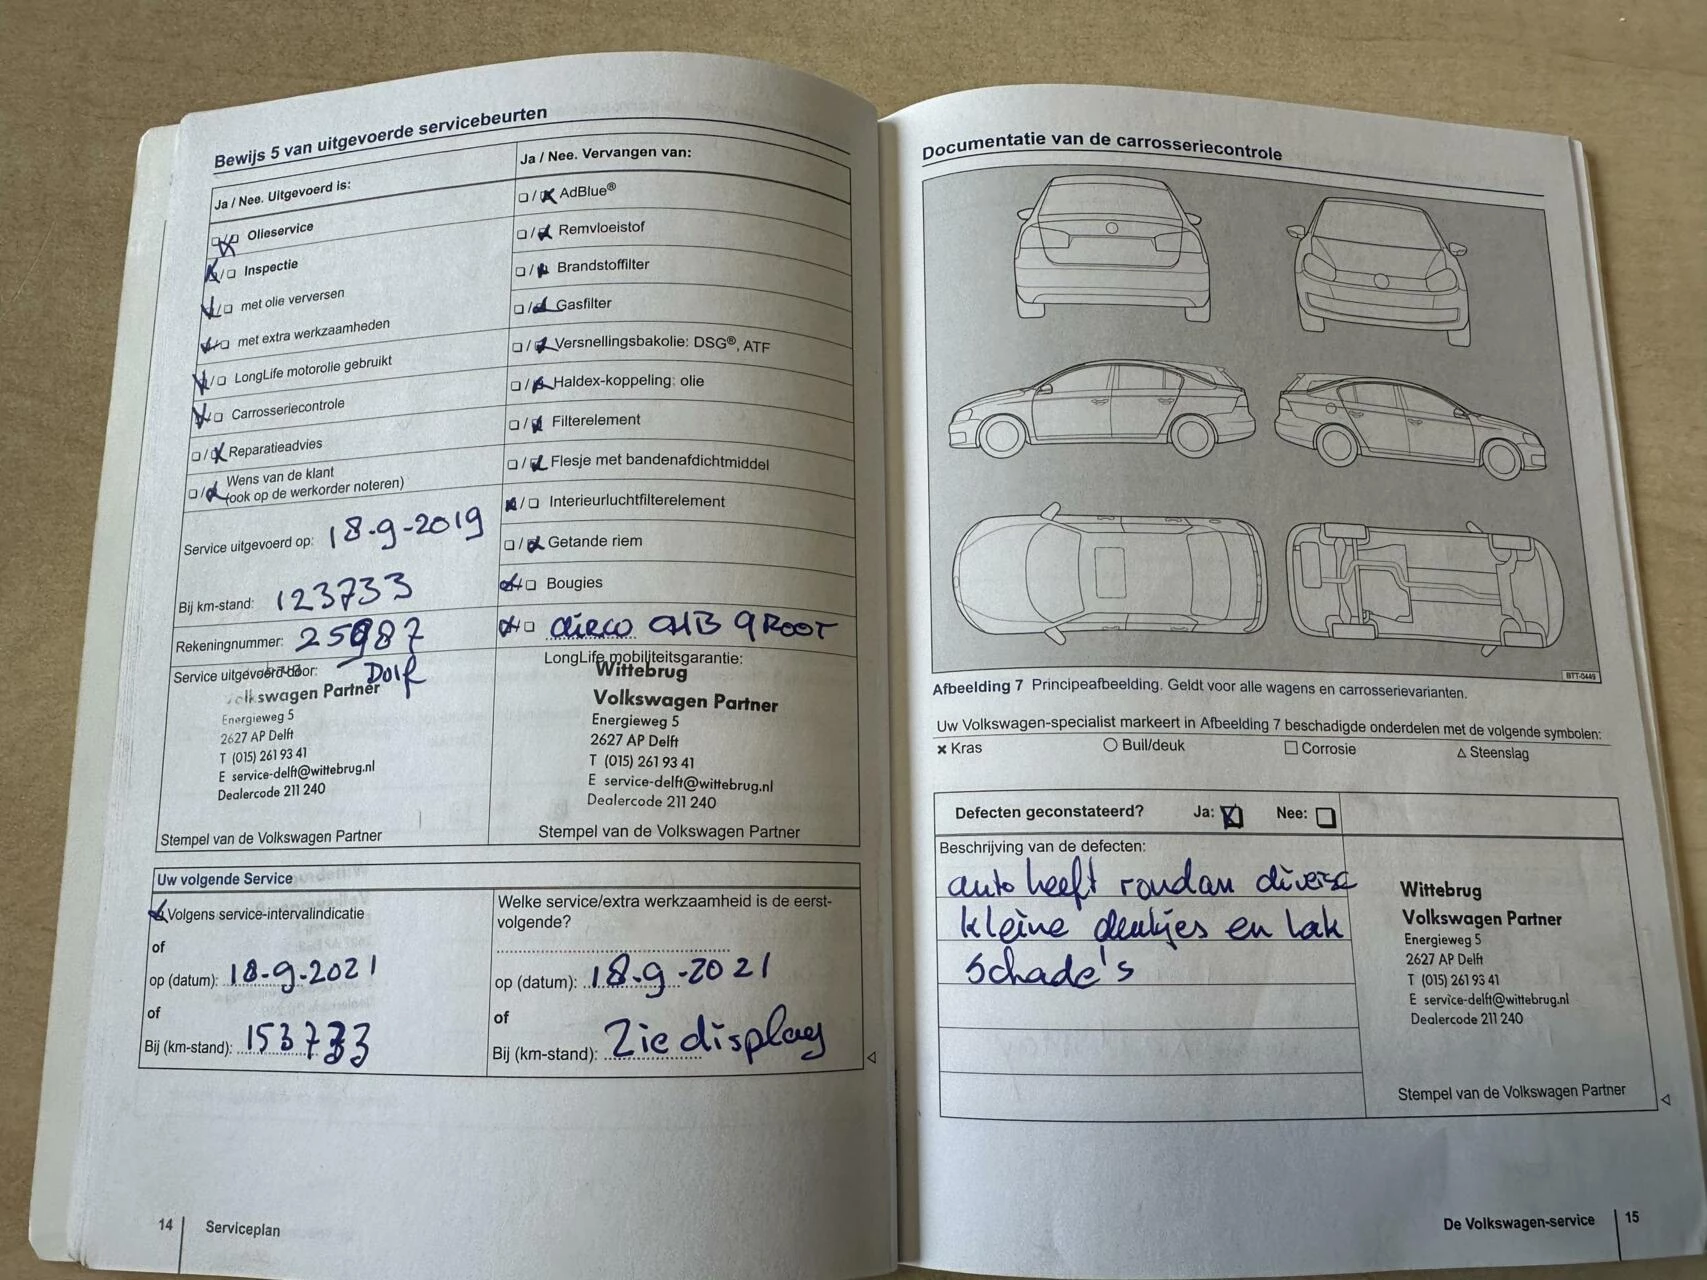 Bewijs 5 van uitgevoerde servicebeurten
Ja / Nee. Uitgevoerd is:
Olieservice
Inspectie
met olie verversen
met extra werkzaamheden
LongLife motorolie gebruikt
Carrosseriecontrole
Reparatieadvies
Wens van de klant
(ook op de werkorder noteren)
Service uitgevoerd op: 18-9-2019
Bij km-stand: 123733
Rekeningnummer: 25987
Service uitgevoerd door:
Dolf
Volkswagen Partner
Energieweg 5
2627 AP Delft
T (015) 261 93 41
E service-delft@wittebrug.nl
Dealercode 211 240
Stempel van de Volkswagen Partner
Ja / Nee. Vervangen van:
AdBlue®
Remvloeistof
Brandstoffilter
Gasfilter
Versnellingsbakolie: DSG®, ATF
Haldex-koppeling: olie
Filterelement
Flesje met bandenafdichtmiddel
Interieurluchtfilterelement
Getande riem
Bougies
LongLife mobiliteitsgarantie:
Wittebrug
Volkswagen Partner
Energieweg 5
2627 AP Delft
T (015) 261 93 41
E service-delft@wittebrug.nl
Dealercode 211 240
Stempel van de Volkswagen Partner
Uw volgende Service
Volgens service-intervalindicatie
of
op (datum): 18-9-2021
of
Bij (km-stand): 153733
Welke service/extra werkzaamheid is de eerst-
volgende?
op (datum): 18-9-2021
of
Bij (km-stand): Zie display
14 Serviceplan
Documentatie van de carrosseriecontrole
BTT-0449
Afbeelding 7 Principeafbeelding. Geldt voor alle wagens en carrosserievarianten.
Uw Volkswagen-specialist markeert in Afbeelding 7 beschadigde onderdelen met de volgende symbolen:
× Kras ○ Buil/deuk □ Corrosie △ Steenslag
Defecten geconstateerd? Ja: Nee:
Beschrijving van de defecten:
auto heeft rondan diverse
kleine deukjes en lak
schade's
Wittebrug
Volkswagen Partner
Energieweg 5
2627 AP Delft
T (015) 261 93 41
E service-delft@wittebrug.nl
Dealercode 211 240
Stempel van de Volkswagen Partner
De Volkswagen-service 15